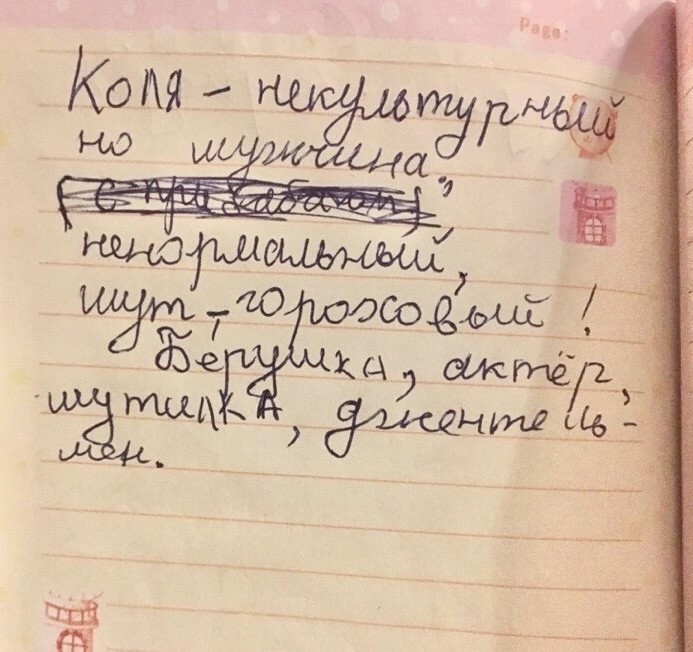 Page:
Коля – некультурный
но мужчина",
ненормальный,
шут – гороховый!
Берушка, актёр,
шутилкА, джентель-
мен.